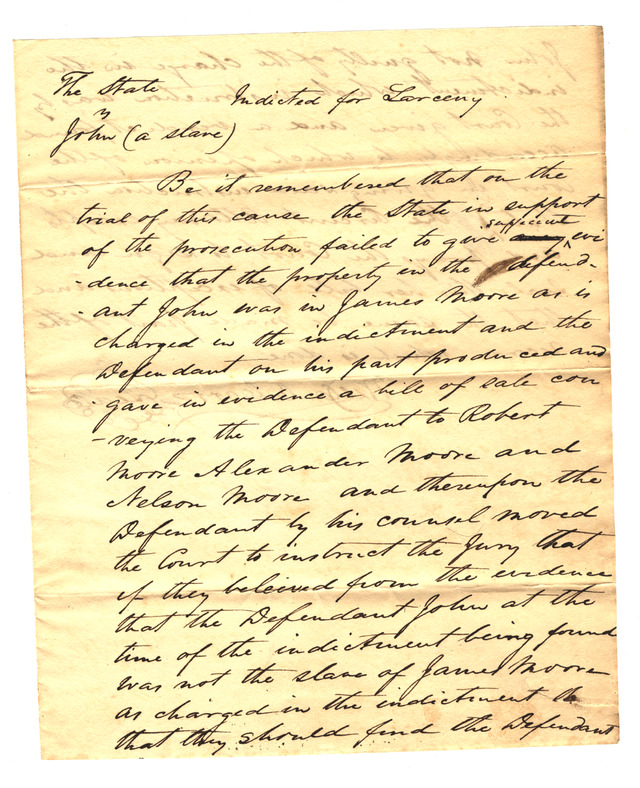 The State
vs Indicted for Larceny.
John (a slave)
Be it remembered that on the
trial of this cause the State in support
of the prosecution failed to give any sufficient evi
-dence that the property in the defend-
ant John was in James Moore as is
charged in the indictment and the
Defendant on his part produced and
gave in evidence a bill of sale con
-veying the Defendant to Robert
Moore Alexander Moore and
Nelson Moore and thereupon the
Defendant by his counsel moved
the Court to instruct the Jury that
if they beleived from the evidence
that the Defendant John at the
time of the indictment being found
was not the slave of James Moore
as charged in the indictment
that they should find the Defendant